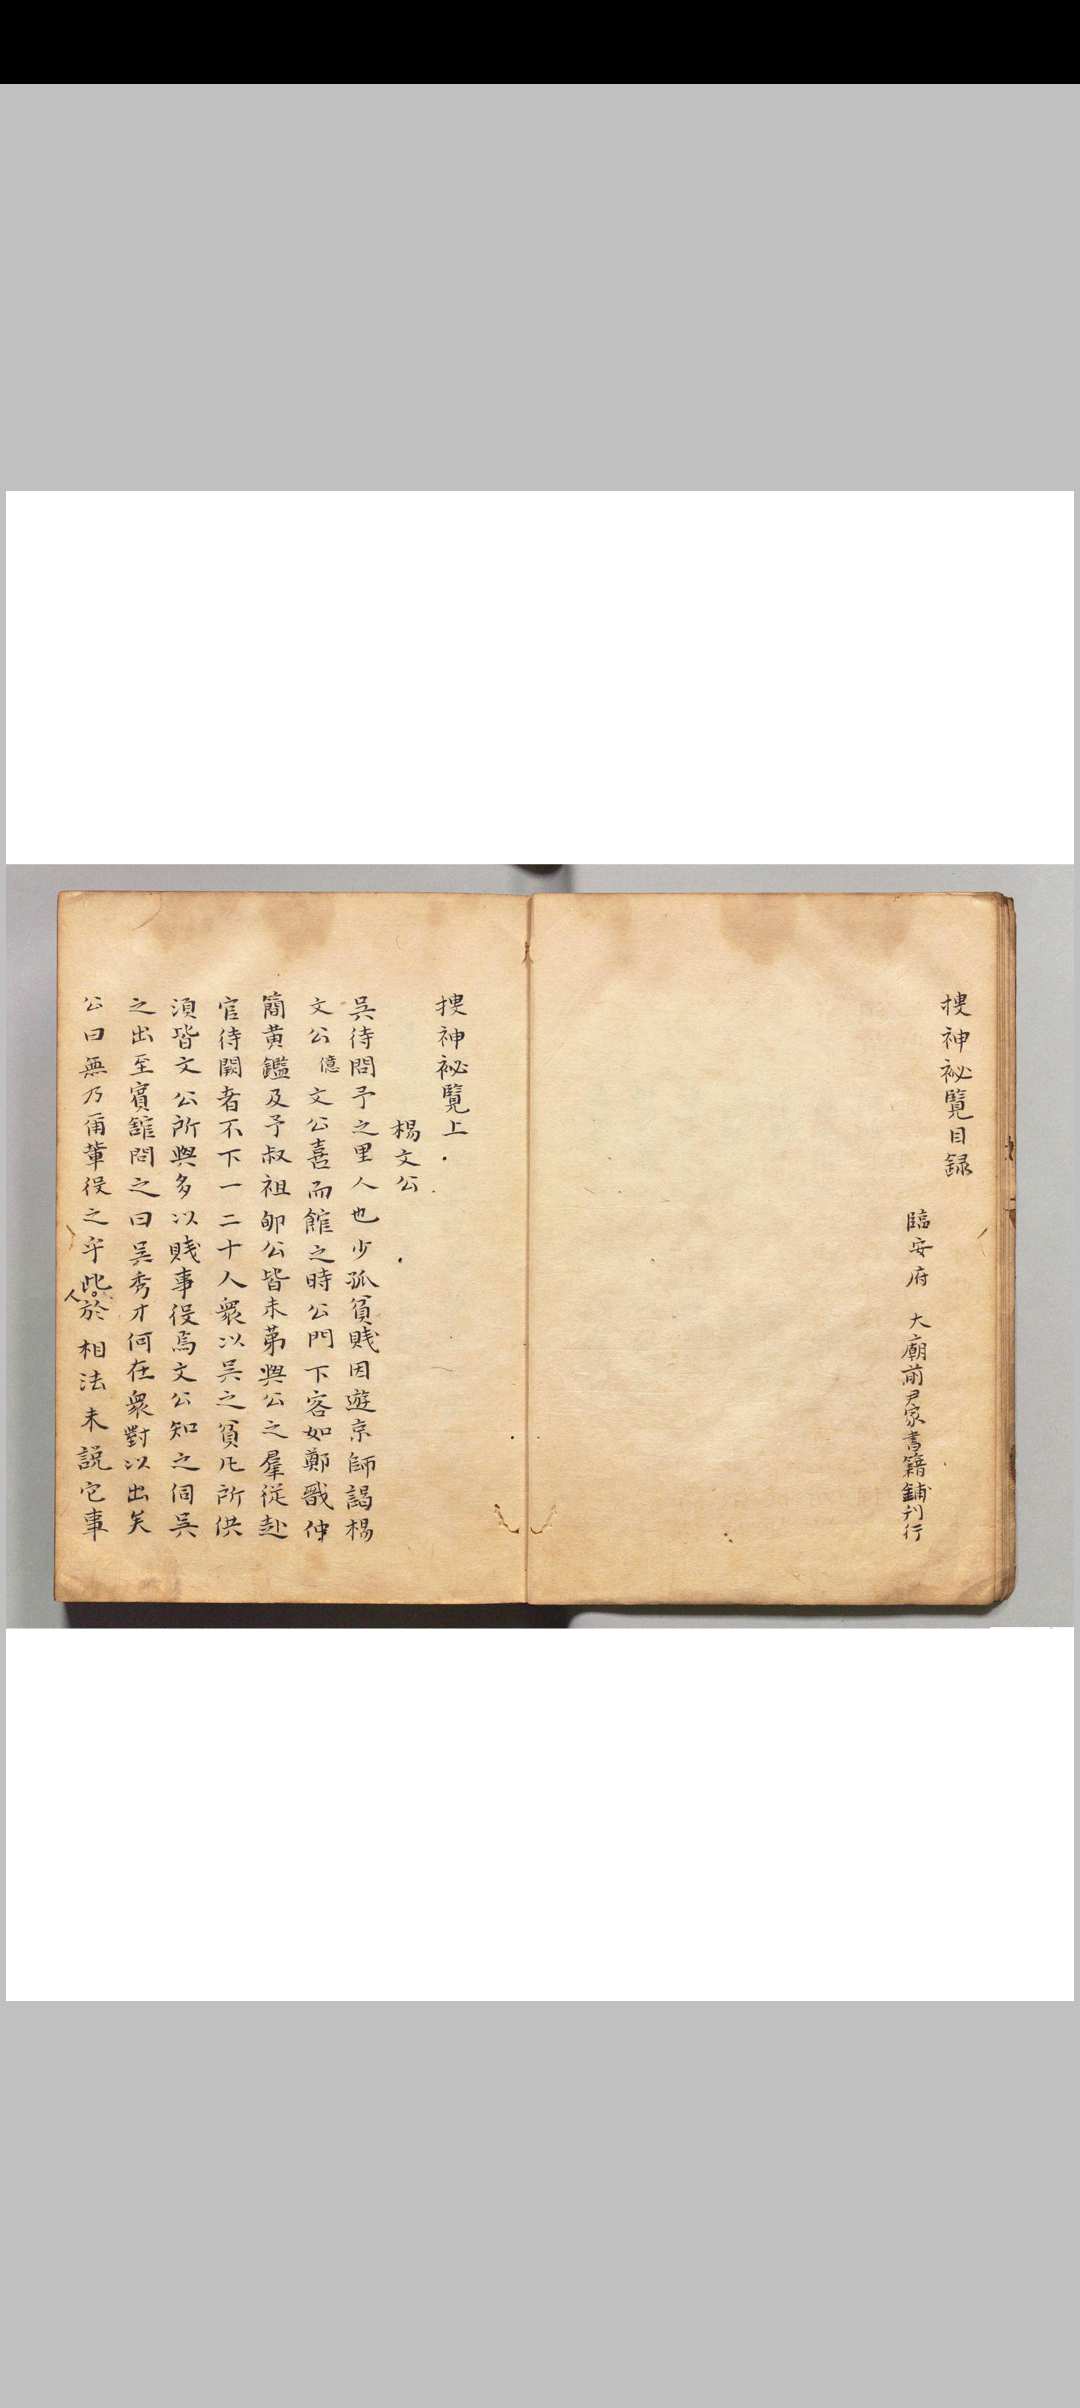 搜神祕覽目録
臨安府 大廟前尹家書籍鋪刋行
搜神祕覽上
楊文公
吳待問予之里人也少孤貧賤因遊京師謁楊
文公億文公喜而館之時公門下客如鄭戩仲
簡黃鑑及予叔祖郇公皆未苐與公之羣從赴
官待闕者不下一二十人衆以吳之貧凡所供
湏皆文公所與多以賤事役焉文公知之伺吳
之出至賓舘問之曰吳秀才何在衆對以出矣
公曰無乃甭軰役之乎此人於相法未説它事